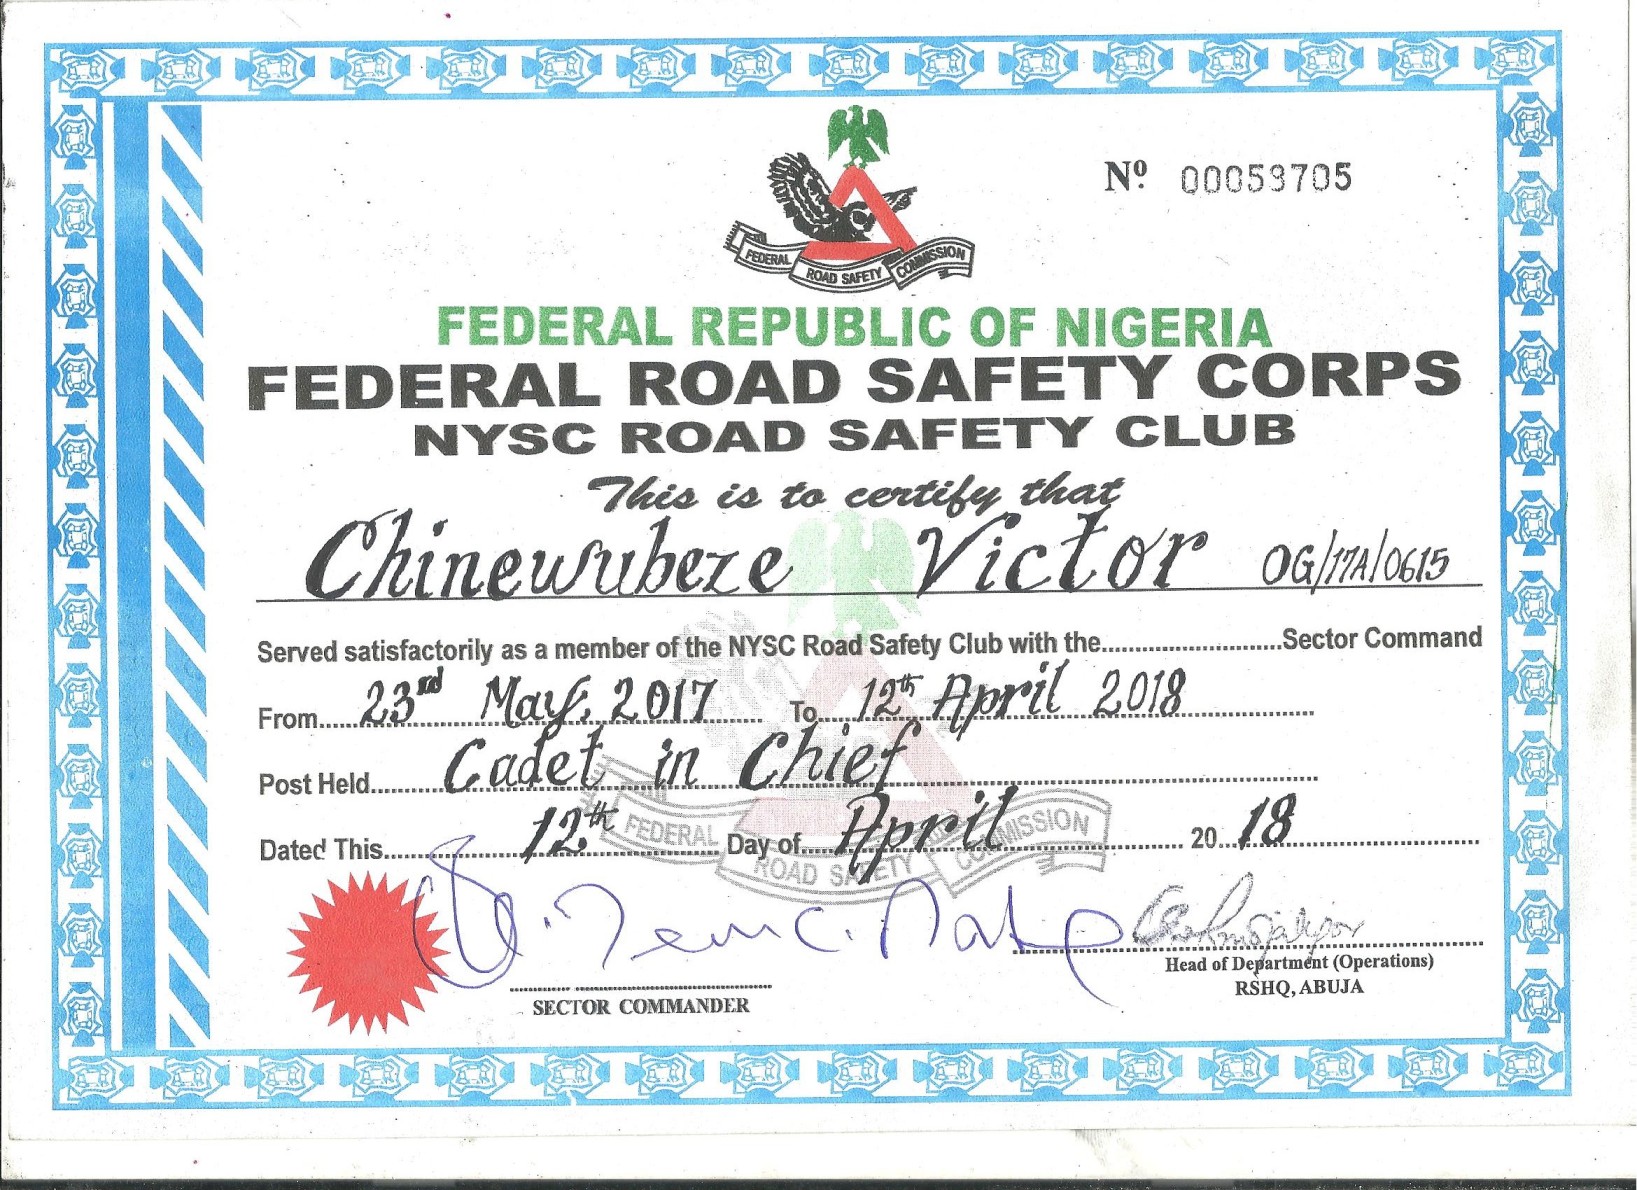 Nº 00053705
FEDERAL ROAD SAFETY COMMISSION
FEDERAL REPUBLIC OF NIGERIA
FEDERAL ROAD SAFETY CORPS
NYSC ROAD SAFETY CLUB
This is to certify that
Chinewubeze Victor OG/17A/0615
Served satisfactorily as a member of the NYSC Road Safety Club with the..............................Sector Command
From....23rd May, 2017 To....12th April 2018
Post Held....Cadet in Chief
Dated This....12th Day of....April 20..18
FEDERAL ROAD SAFETY COMMISSION
SECTOR COMMANDER
Head of Department (Operations)
RSHQ, ABUJA